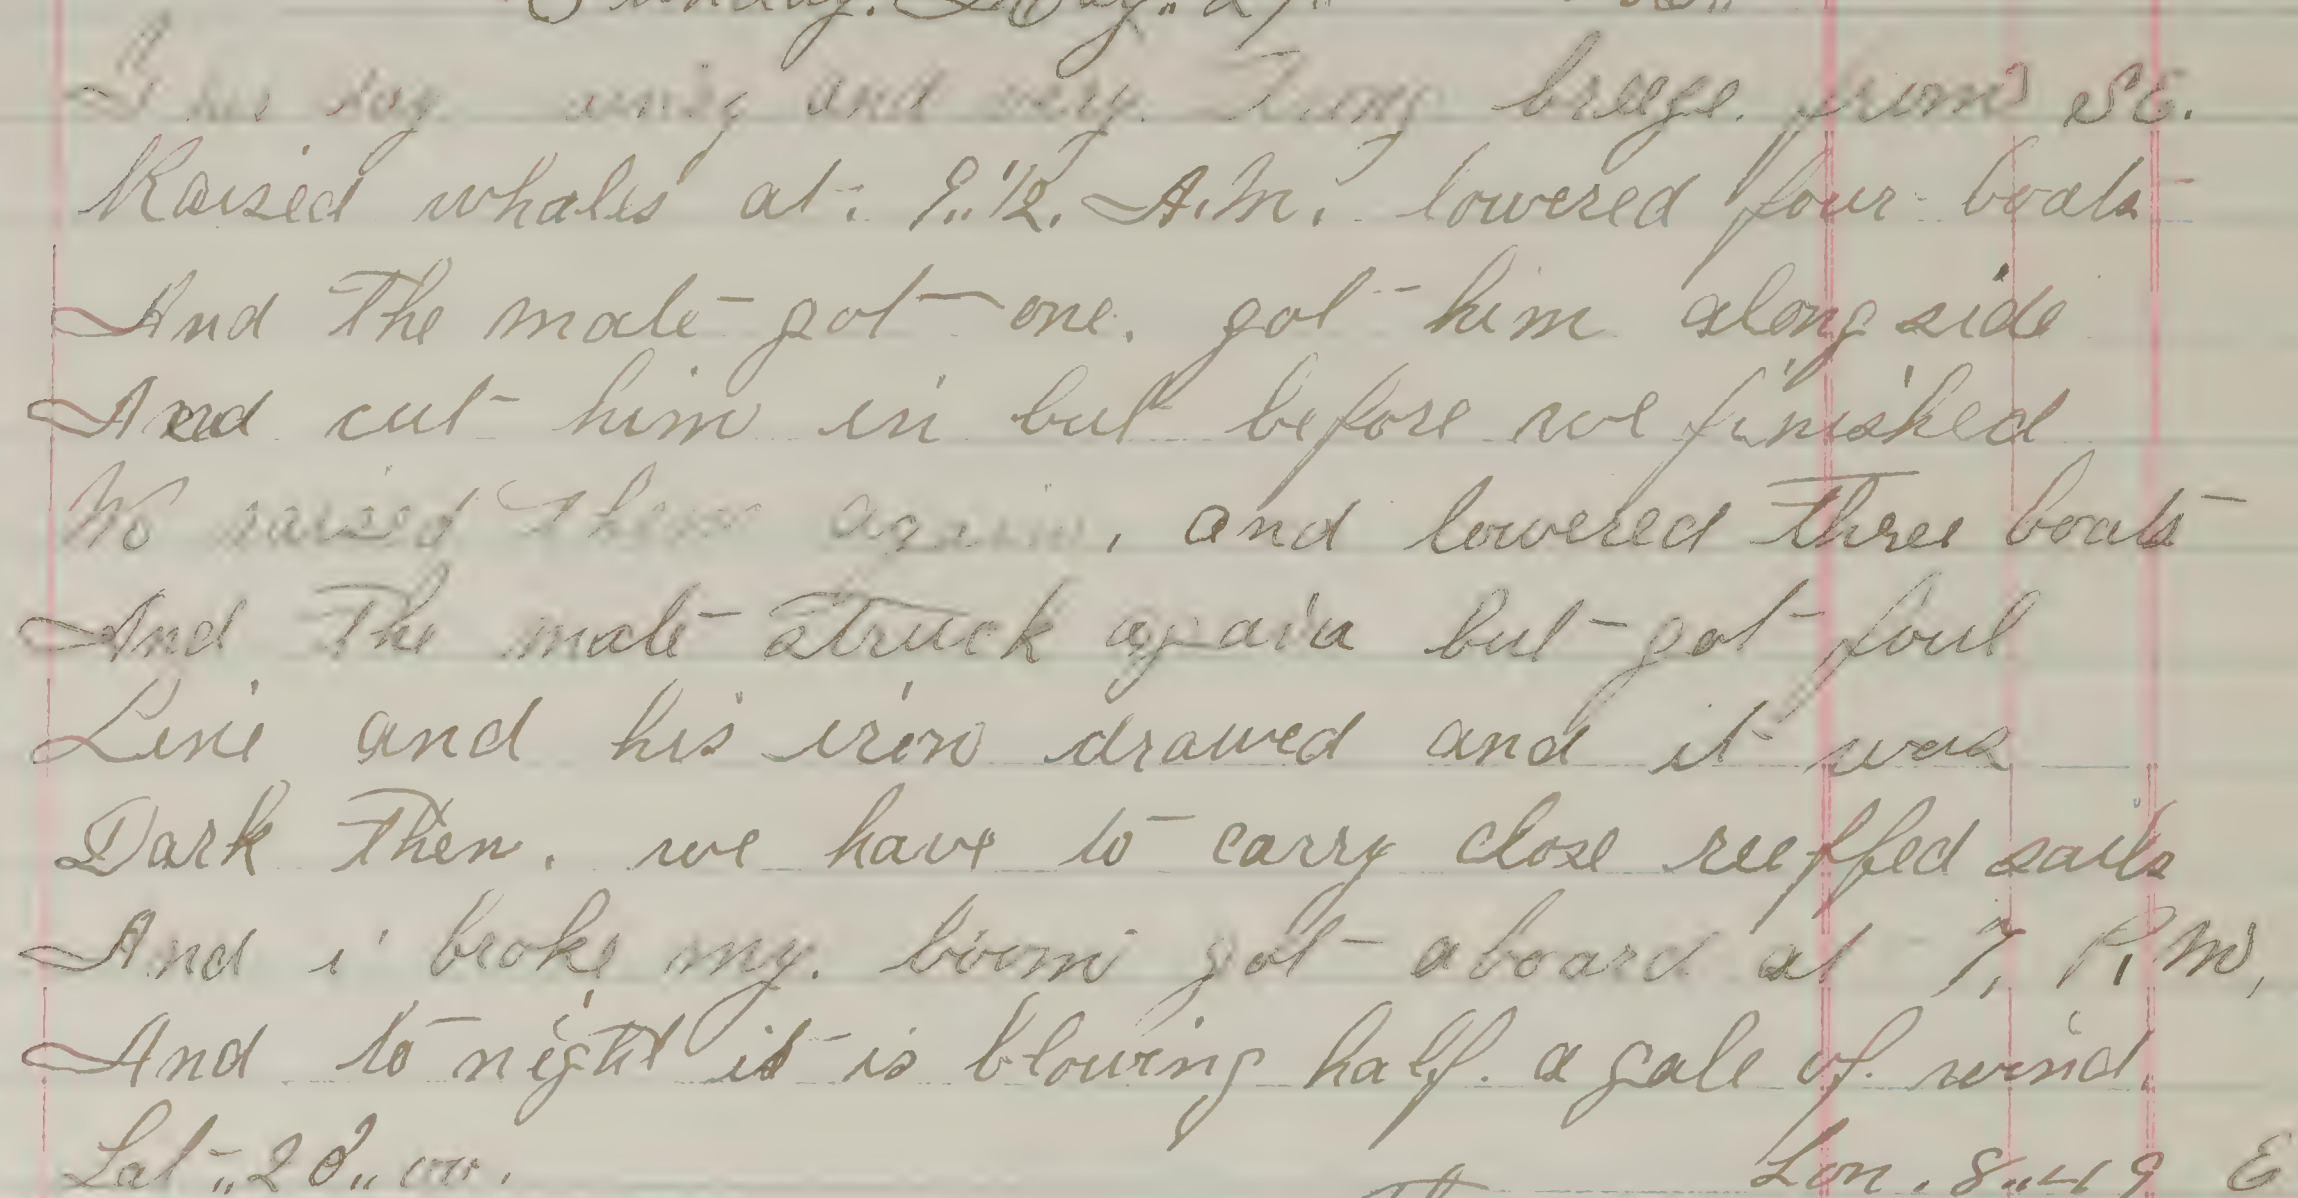 Sunday. May.. 27"
This day and very breeze. from SE.
Raised whales at. 9..1/2. A.M. lowered four boats
And the mate got one. got him along side
And cut him in but before we finished
We raised them again, and lowered three boats
And the mate struck again but got foul
Line and his iron drawed and it was
Dark then. we have to carry close reeffed sails
And i broke my. boom got aboard at 7. P.M,
And to night it is blowing half. a gale of. wind.
Lat .. 28.. 00. Lon. 8..49 E